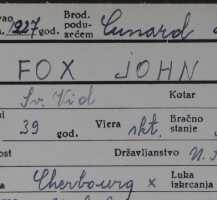 vao 1927 god. Brod. podu- zećem Cunard
FOX JOHN
Sv. Vid Kotar
39 god. Vjera rkt. Bračno stanje
ost Državljanstvo
Cherbourg x Luka izkrcanja